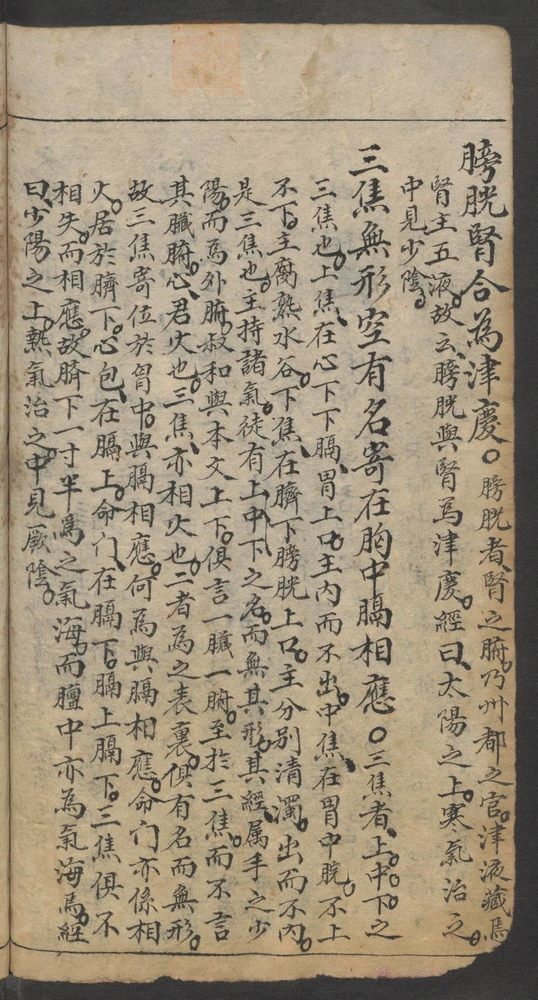 膀胱腎合為津慶。膀胱者腎之腑。乃州都之官。津液藏焉。
腎主五液。故云膀胱與腎為津慶。經曰太陽之上。寒氣治之。
中見少陰。
三焦無形空有名寄在胸中膈相應。三焦者。上中下之
三焦也。上焦在心下下膈胃上口。主內而不出。中焦在胃中脘。不上
不下。主腐熟水谷。下焦在臍下膀胱上口。主分別清濁。出而不內。
是三焦也。主持諸氣。徒有上中下之名。而無其形。其經属手之少
陽。而為外腑。叔和與本文上下。俱言一臟一腑。至於三焦。而不言
其臟腑。心君火也。三焦亦相火也。二者為之表裏。俱有名而無形。
故三焦寄位於胷中。與膈相應。何為與膈相應。命門亦係相
火。居於臍下。心包在膈上。命門在膈下。膈上膈下。三焦俱不
相失。而相應。故臍下一寸半為之氣海。而膻中亦為氣海焉。經
曰。少陽之上。熱氣治之。中見厥陰。